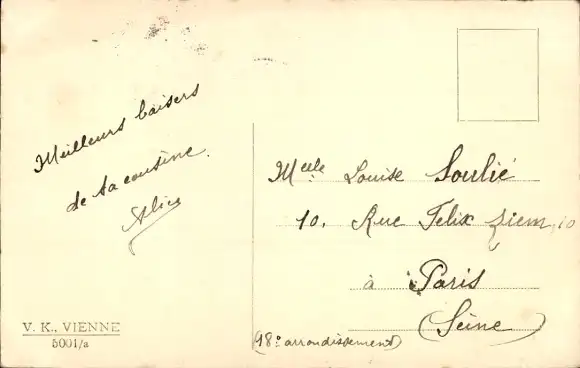 Meilleurs baisers
de ta cousine
Alice
Melle Louise Soulié
10, Rue Felix Ziem, 10
à Paris
(Seine)
(18e arrondissement)
V. K., VIENNE
5001/a